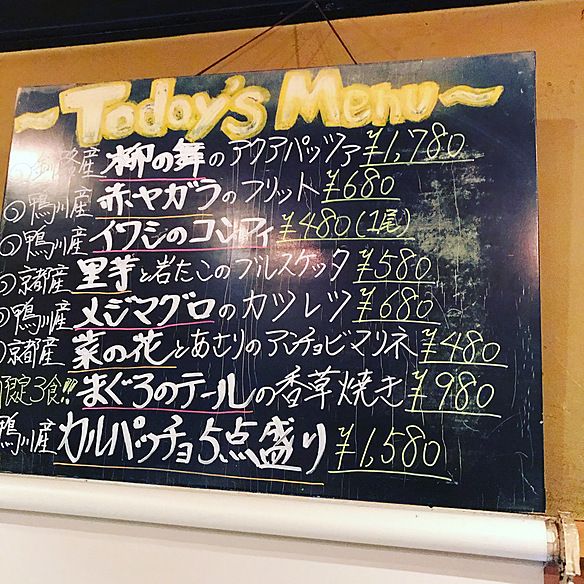 ~Today's Menu~
◎釧路産 柳の舞のアクアパッツァ ¥1,780
◎鴨川産 赤ヤガラのフリット ¥680
◎鴨川産 イワシのコンフィ ¥480(1尾)
◎京都産 里芋と岩たこのブルスケッタ ¥580
◎鴨川産 メジマグロのカツレツ ¥680
◎京都産 菜の花とあさりのアンチョビマリネ ¥480
限定3食!!! まぐろのテールの香草焼き ¥980
鴨川産 カルパッチョ5点盛り ¥1,580